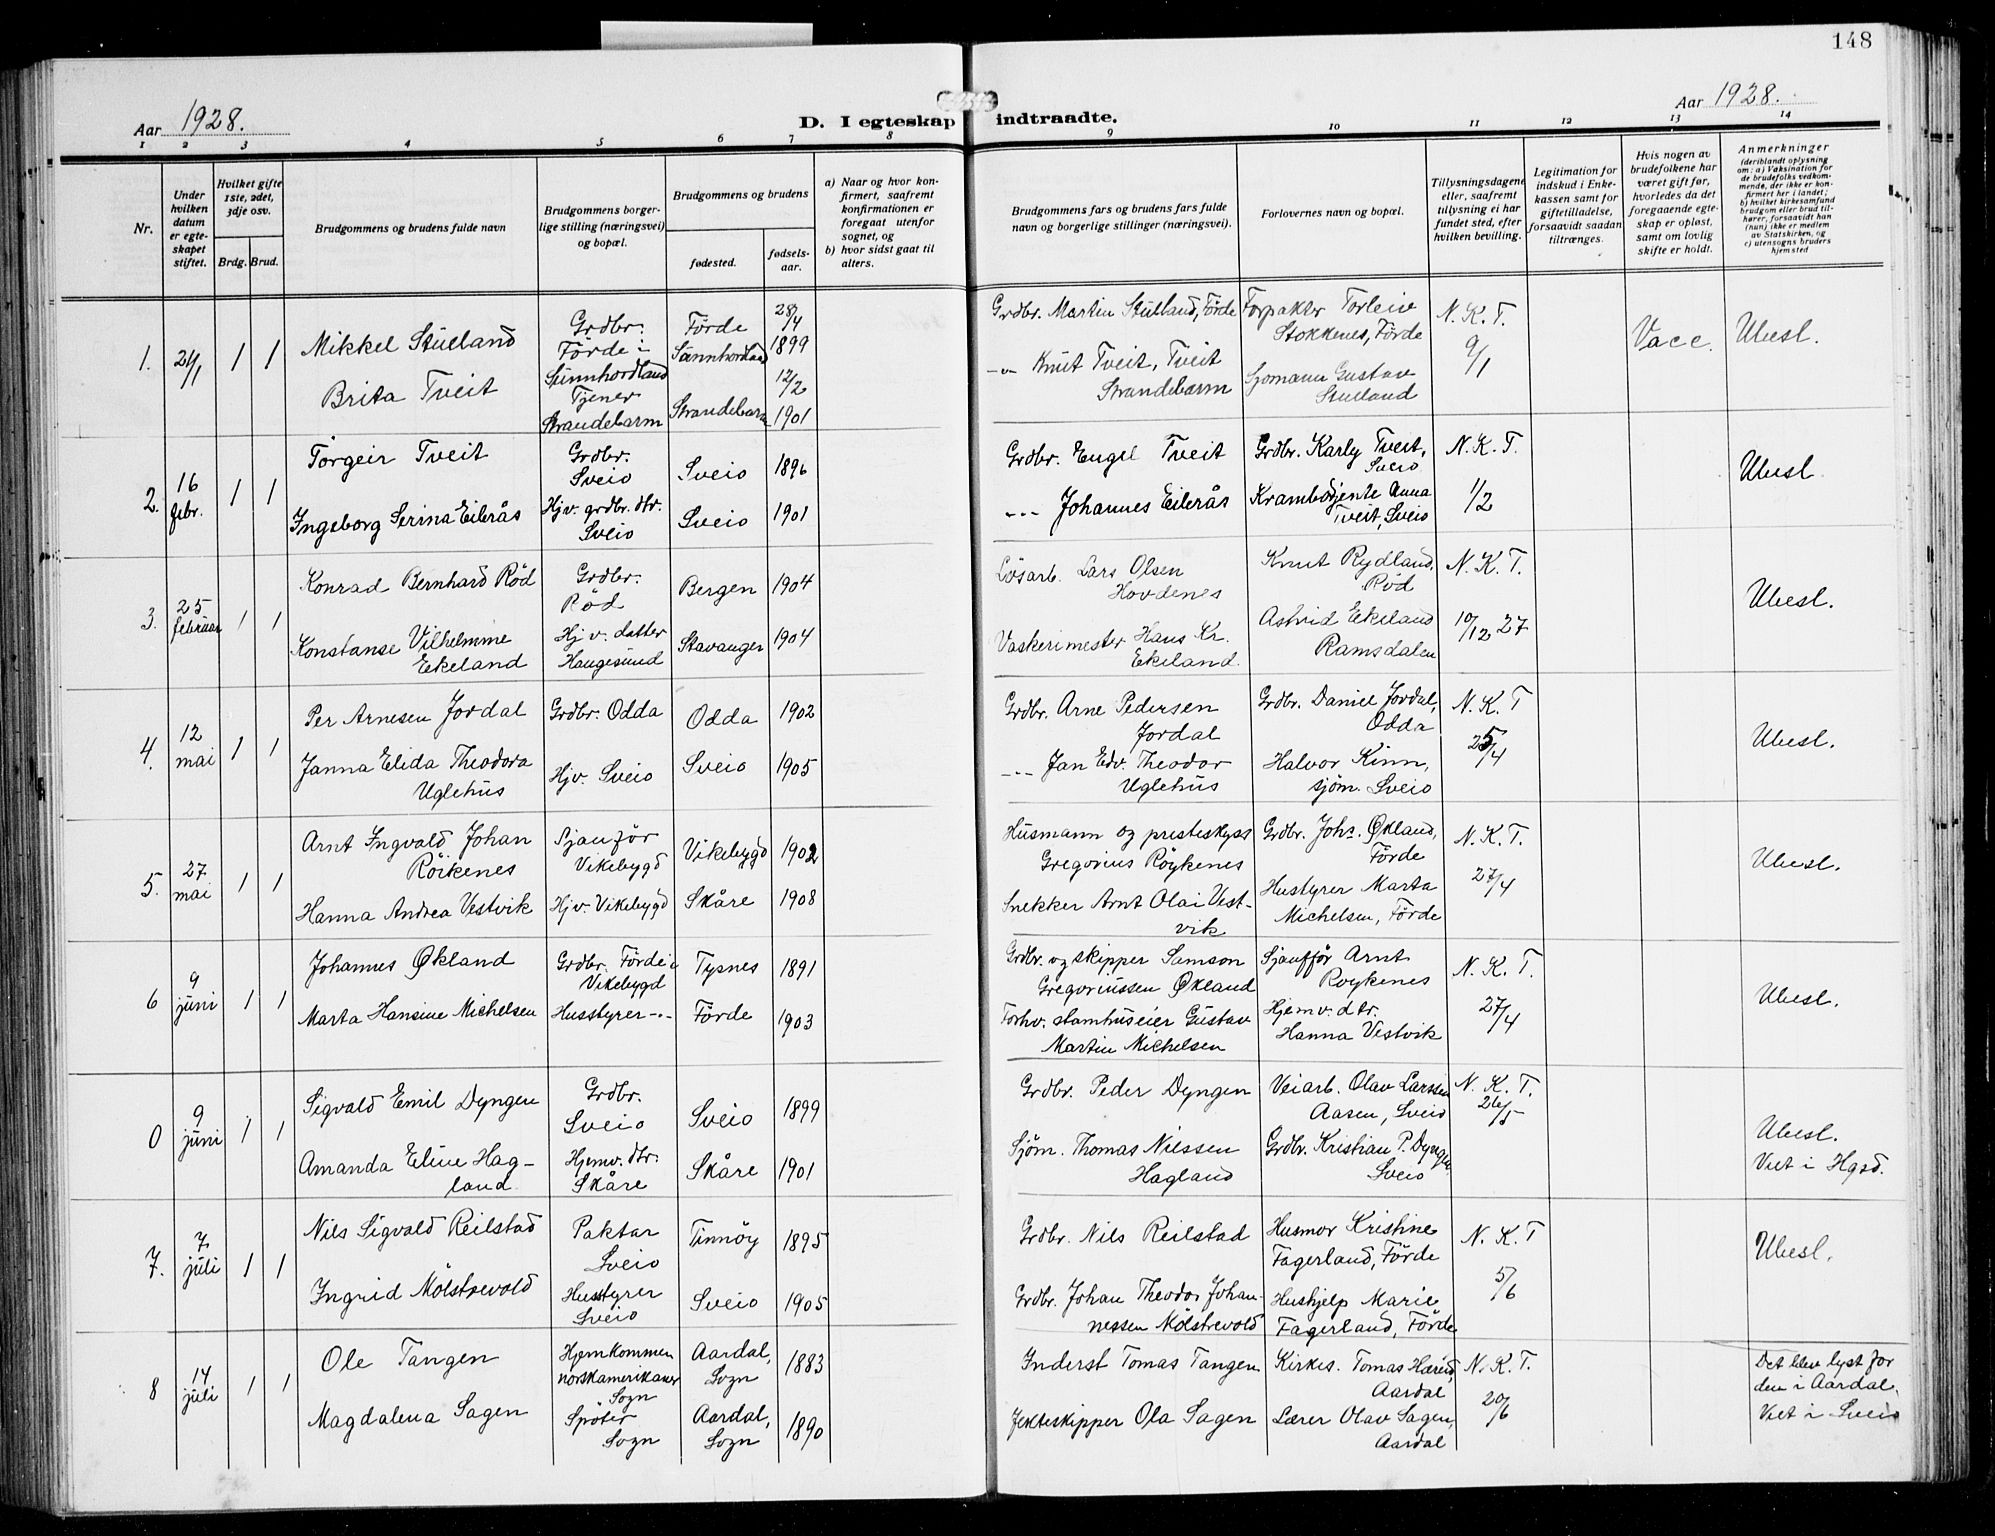 148
Aar 1928.
D. I egteskap indtraadte.
Aar 1928.
1 2 3 4 5 6 7 8 9 10 11 12 13 14
Nr.
Under hvilken datum er egteskapet stiftet.
Hvilket gifte 1ste, 2det, 3dje osv.
Brdg. Brud.
Brudgommens og brudens fulde navn
Brudgommens borgerlige stilling (næringsvei) og bopæl.
Brudgommens og brudens
fødested.
fødselsaar.
a) Naar og hvor konfirmert, saafremt konfirmationen er foregaat utenfor sognet, og
b) hvor sidst gaat til alters.
Brudgommens fars og brudens fars fulde navn og borgerlige stillinger (næringsvei)
Forlovernes navn og bopæl.
Tillysningsdagene eller, saafremt tillysning ei har fundet sted, efter hvilken bevilling.
Legitimation for indskud i Enkekassen samt for giftetilladelse, forsaavidt saadan tiltrænges.
Hvis nogen av brudefolkene har været gift før, hvorledes da det foregaaende egteskap er opløst, samt om lovlig skifte er holdt.
Anmerkninger
(deriblandt oplysning om: a) Vaksination for de brudefolks vedkommende, der ikke er konfirmert her i landet; b) hvilket kirkesamfund brudgom eller brud tilhører, forsaavidt han (hun) ikke er medlem av Statskirken, og c) utensogns bruders hjemsted
1. 21/1 1 1
Mikkel Stueland
Grdbr. Förde i Sunnhordland
Förde Sunnhordland
28/4 1899
Grdbr. Martin Stueland, Förde
Forpakter Torleiv Stokkenes, Förde
N. K. T.
9/1
Vacc.
Ubesl.
Brita Tveit
Tjener Strandebarm
Strandebarm
12/2 1901
-"- Knut Tveit, Tveit Strandebarm
Sjomann Gustav Stueland
2. 16 febr. 1 1
Torgeir Tveit
Grdbr. Sveio
Sveio
1896
Grdbr. Engel Tveit
Grdbr. Karly Tveit, Sveio
N. K. T.
1/2
Ubesl.
Ingeborg Serina Eilerås
Hjv. grdbr. dtr. Sveio
Sveio
1901
-"- Johannes Eilerås
Krambodjente Anna Tveit, Sveio
3. 25 februar 1 1
Konrad Bernhard Röd
Grdbr. Röd
Bergen
1904
Lösarb. Lars Olsen Hovdenes
Knut Rydland, Röd
N. K. T.
10/12 27
Ubesl.
Konstanse Vilhelmine Ekeland
Hjv. datter Haugesund
Stavanger
1904
Vaskerimester Hans Kr. Ekeland
Astrid Ekeland Ramsdalen
4. 12 mai 1 1
Per Arnesen Jordal
Grdbr. Odda
Odda
1902
Grdbr. Arne Pedersen Jordal
Grdbr. Daniel Jordal, Odda
N. K. T
25/4
Ubesl.
Janna Elida Theodora Uglehus
Hjv. Sveio
Sveio
1905
-"- Jan Edv. Theodor Uglehus
Halvor Kinn, sjöm. Sveio
5. 27 mai 1 1
Arnt Ingvald Johan Röikenes
Sjauför Vikebygd
Vikebygd
1902
Husmann og presteskyss Gregorius Röykenes
Grdbr. Johs. Økland, Förde
N. K. T.
27/4
Ubesl.
Hanna Andrea Vestvik
Hjv. Vikebygd
Skåre
1908
Snekker Arnt Olai Vestvik
Hustyrer Marta Michelsen, Förde
6 9 juni 1 1
Johannes Økland
Grdbr. Förde i Vikebygd
Tysnes
1891
Grdbr. og skipper Samson Gregoriussen Økland
Sjauför Arnt Roykenes
N. K. T.
27/4
Ubesl.
Marta Hansine Michelsen
Husstyrer -"-
Förde
1903
Forhv. stamhuseier Gustav Martin Michelsen
Hjemv. dtr. Hanna Vestvik
0 9 juni 1 1
Sigvald Emil Dyngen
Grdbr. Sveio
Sveio
1899
Grdbr. Peder Dyngen
Veiarb. Olav Larssen Aasen, Sveio
N. K. T.
26/5
Ubesl.
Viet i Hgsd.
Amanda Eline Hagland
Hjemv. dtr. Skåre
Skåre
1901
Sjöm. Thomas Nilssen Hagland
Grdbr. Kristian P. Dyngen Sveio
7. 7. juli 1 1
Nils Sigvald Reilstad
Paktar Sveio
Finnöy
1895
Grdbr. Nils Reilstad
Husmor Kristine Fagerland, Förde
N. K. T
5/6
Ubesl.
Ingrid Mölstrevold
Husstyrer Sveio
Sveio
1905
Grdbr. Johan Theodor Johannessen Mölstrevold
Hushjelp Marie Fagerland, Förde
8 14 juli 1 1
Ole Tangen
Hjemkommen norskamerikaner Sogn
Aardal, Sogn
1883
Inderst Tomas Tangen
Kirkes. Tomas Hæreid, Aardal
N. K. T.
20/6
Det blev lyst for dem i Aardal. Viet i Sveio
Magdalena Sagen
Sogn
Aardal, Sogn
1890
Jekteskipper Ola Sagen
Lærer Olav Sagen, Aardal